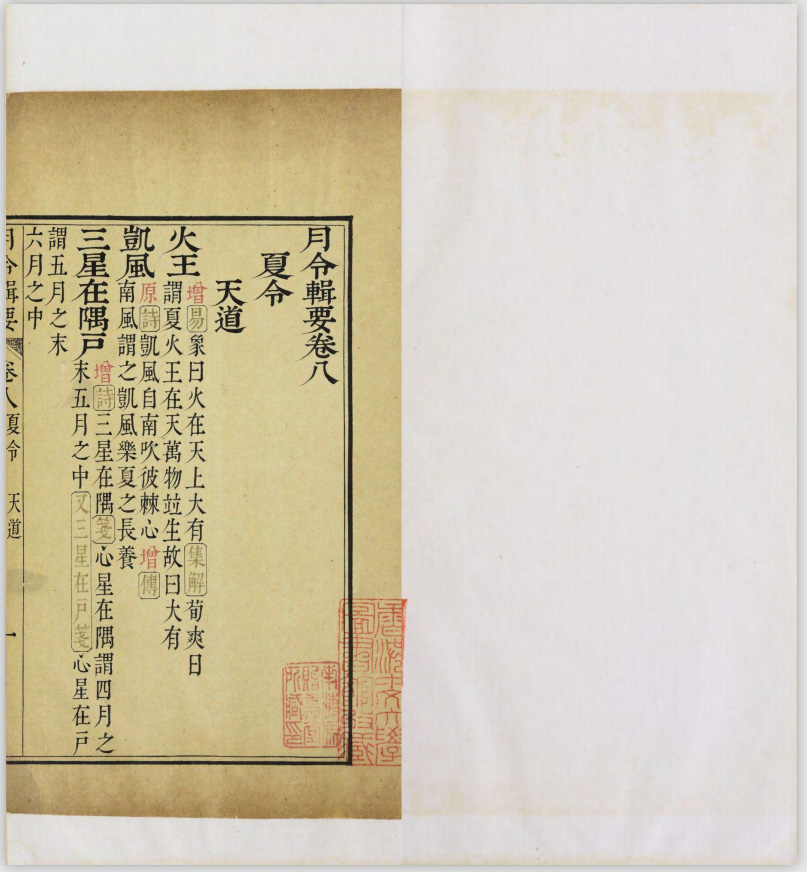 月令輯要卷八
夏令
天道
火王
增易象曰火在天上大有集解荀爽曰
謂夏火王在天萬物竝生故曰大有
凱風
原詩凱風自南吹彼棘心增傳
南風謂之凱風樂夏之長養
三星在隅戶
增詩三星在隅箋心星在隅謂四月之
末五月之中又三星在戶箋心星在戶
謂五月之末
六月之中
月令輯要 卷八夏令 天道 一